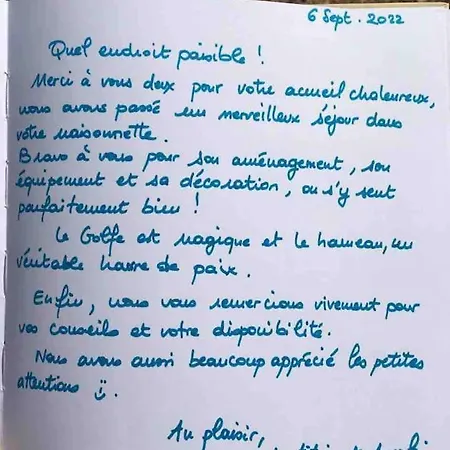 6 Sept. 2022
Quel endroit paisible !
Merci à vous deux pour votre accueil chaleureux,
nous avons passé un merveilleux séjour dans
votre maisonnette.
Bravo à vous pour son aménagement, son
équipement et sa décoration, on s'y sent
parfaitement bien !
Le Golfe est magique et le hameau, un
véritable havre de paix.
Enfin, nous vous remercions vivement pour
vos conseils et votre disponibilité.
Nous avons aussi beaucoup apprécié les petites
attentions ☺.
Au plaisir,